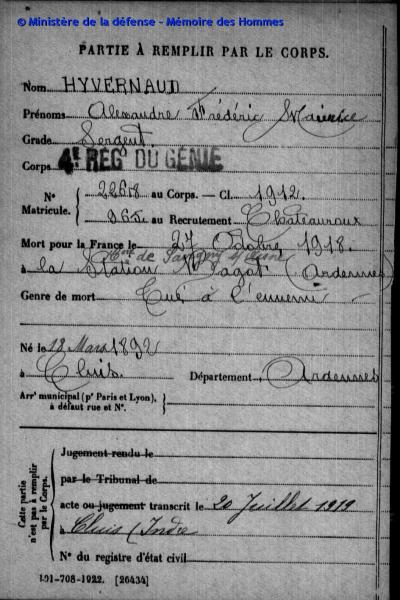 © Ministère de la défense - Mémoire des Hommes
PARTIE À REMPLIR PAR LE CORPS.
Nom HYVERNAUD
Prénoms Alexandre Frédéric Maurice
Grade Sergent
Corps 4E RÉG DU GÉNIE
N° 22658 au Corps. — Cl. 1912.
Matricule. 965 au Recrutement Chateauroux
Mort pour la France le 27 Octobre 1918.
Cne de Savigny s/Aisne
à la Station (Ardennes)
Genre de mort Tué à l'ennemi
Né le 18 Mars 1892
à Cluis. Département Ardennes
Arr' municipal (pr Paris et Lyon),
à défaut rue et N°.
Cette partie n'est pas à remplir par le Corps.
Jugement rendu le
par le Tribunal de
acte ou jugement transcrit le 20 Juillet 1919
à Cluis (Indre
N° du registre d'état civil
101-708-1922. [26434]